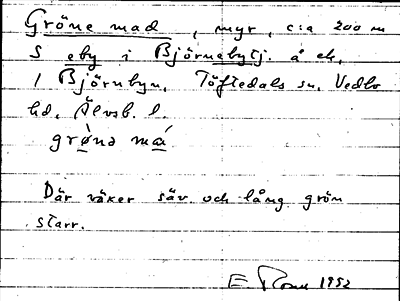 Gröne mad, myr, c:a 200 m
S eby i Björnebytj. å ek.
1 Björnbyn, Töftedals sn, Vedbo
hd, Älvsb. l.
grònə má
Där växer säv och lång grön
starr.
E. 1952